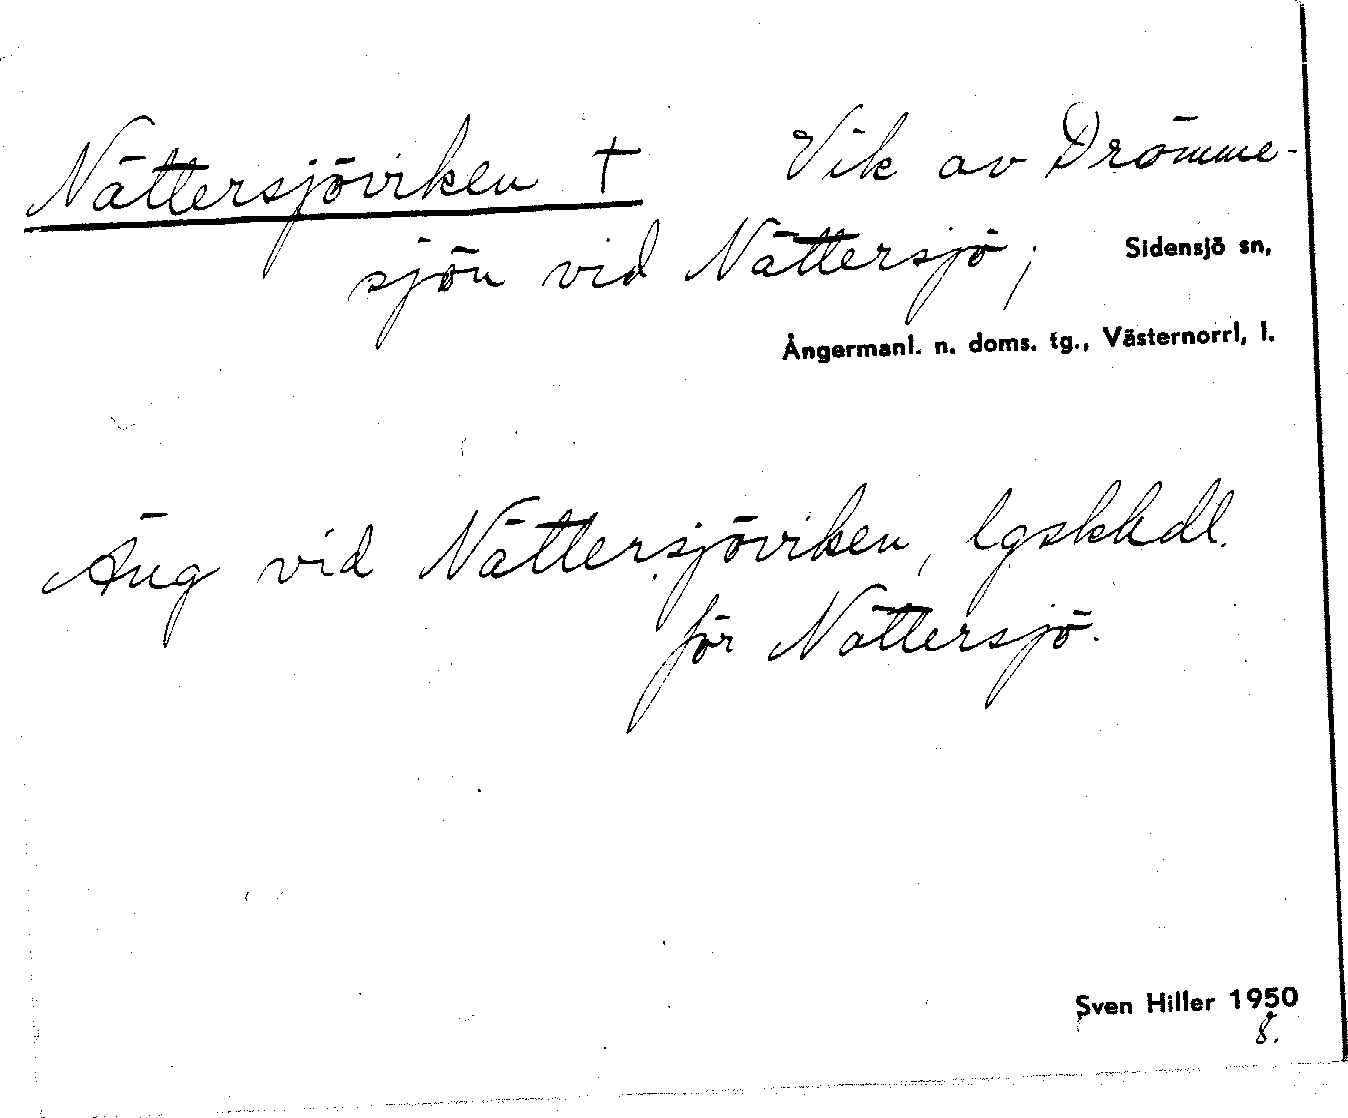 Nättersjöviken † Vik av Drömme-
sjön vid Nättersjö; Sidensjö sn,
Ångermanl. n. doms. tg., Västernorrl, l.
Äng vid Nättersjöviken, lgskhdl.
för Nättersjö.
Sven Hiller 1950
8.